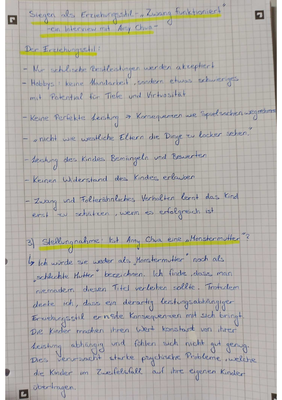 Siegen als Erziehungsstil - „Zwang funktioniert"
- ein Interview mit Amy Chua -
Der Erziehungsstil:
- Nur schulische Bestleistungen werden akzeptiert
- Hobbys: keine Handarbeit, sondern etwas schwieriges
mit Potential für Tiefe und Virtuosität
- Keine Perfekte Leistung → Konsequenzen wie Spielsachen wegnehmen
- „nicht wie westliche Eltern die Dinge zu locker sehen."
- Leistung des Kindes Bemängeln und Bewerten
- Keinen Widerstand des Kindes, erlauben
- Zwang und Folterähnliches Verhalten lernt das Kind
erst zu schätzen, wenn es erfolgreich ist
3) Stellungnahme: Ist Amy Chua eine „Monstermutter"?
↳ Ich würde sie weder als „Monstermutter" noch als
„schlechte Mutter" bezeichnen. Ich finde, dass man
niemandem diesen Titel verleihen sollte. Trotzdem
denke ich, dass ein derartig leistungsabhängiger
Erziehungsstil ernste Konsequenzen mit sich bringt.
Die Kinder machen ihren Wert konstant von ihrer
Leistung abhängig und fühlen sich nicht gut genug.
Dies verursacht starke psychische Probleme, welche
die Kinder im Zweifelsfall auf ihre eigenen Kinder
übertragen.